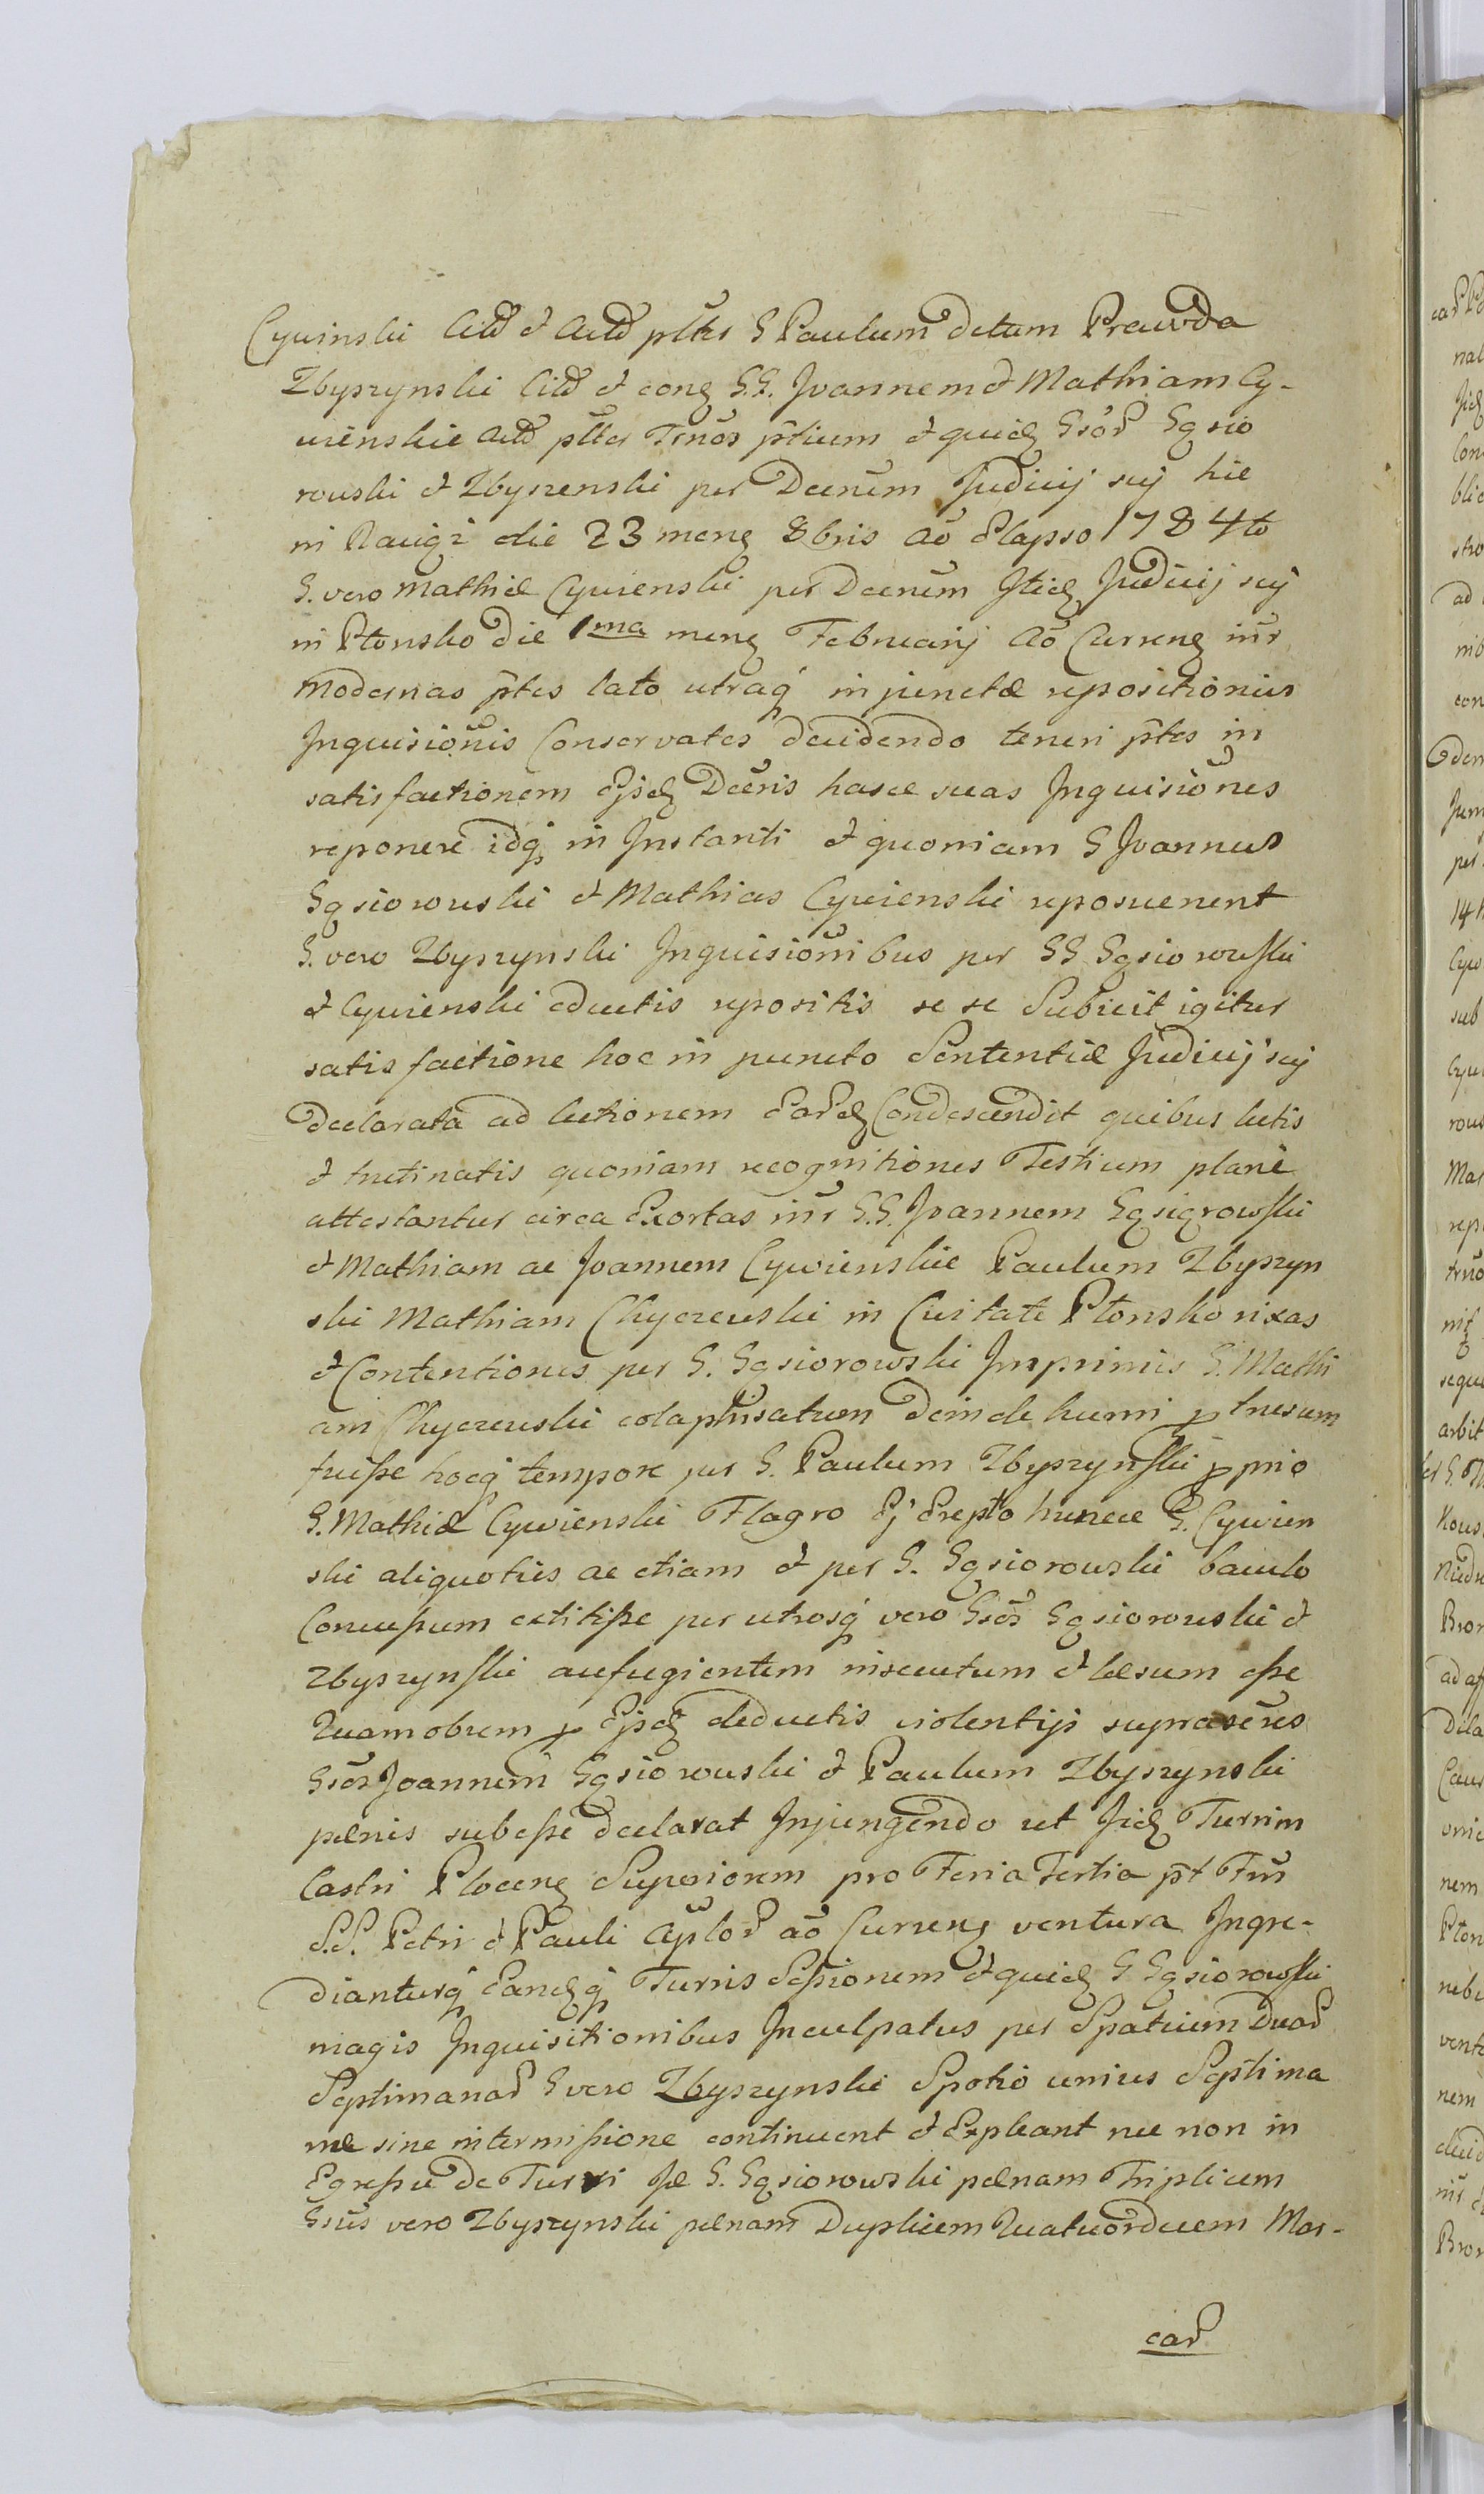 Cywinski Citō & Actō pltēs G Paulum dctum Prawda
Zbyszynski Citō & cong G.G. Joannem & Mathiam Cy-
wienskie Actō pltēr Trnōs ptium & quidē Gsōr Gąsio
rowski & Zbyszenski per Decrum Judicij sui hic
in Raciąż die 23 mens 8bris Aō Elapso 1784to
G. vero Mathiæ Cywienski per Decrum Itid Judicij sui
in Płonsko die 1ma mens Februarij Aō Currens intr
modernas ptes lato utraq injunctæ repositionis
Inquisionis Conservatas decidendo teneri ptes in
satisfactionem Ejsd Decris hasce suas Inquisiones
reponere idq in Instanti & quoniam G Joannes
Gąsiorowski & Mathias Cywienski reposuerunt
G. vero Zbyszynski Inquisionibus per GG Gąsiorowski
& Cywienski eductis repositis se se Subiecit igitur
satisfactione hoc in puncto Sententiæ Judicij sui
declarata ad lectionem Earsd Condescendit quibus lectis
& trutinatis quoniam recognitiones Testium plane
attestantur circa Exortas intr G.G. Joannem Gąsiąrowski
& Mathiam ac Joannem Cywienskie Paulum Zbyszyn
ski Mathiam Chyczewski in Civitate Płonsko rixas
& Contentiones per G. Gąsiorowski Inprimis G. Mathi
am Chyczewski colaphisatum deinde humi ptrusum
fuisse hocq tempore per G. Paulum Zbyszynski pprio
G. Mathiæ Cywienski Flagro Ej Erepto huncce G. Cywien
ski aliquoties ac etiam & per G. Gąsiorowski baculo
Concussum extitisse per utrosq vero Gsōs Gąsiorowski &
Zbyszynski aufugientem insecutum & læsum esse
Quamobrem p Ejsd deductis violentijs suprascres
Gsos Joannem Gąsiorowski & Paulum Zbyszynski
pænis subesse declarat Injungendo ut Iid Turrim
Castri Plocens Superiorem pro Feria Tertia pt Ftum
S.S. Petri & Pauli Aplōr aō Currens ventura Ingre-
dianturq Eandq Turris Sessionem & quid G Gąsiorowski
magis Inquisitionibus Inculpatus per Spatium Duar
Septimanar G vero Zbyszynski Spatio unius Septima
næ sine intermissione continuent & Expleant nec non in
Egressu de Turri Iple G. Gąsiorowski pænam Triplicem
Gsus vero Zbyszynski pænam Duplicem Quatuordecem Mar-
car